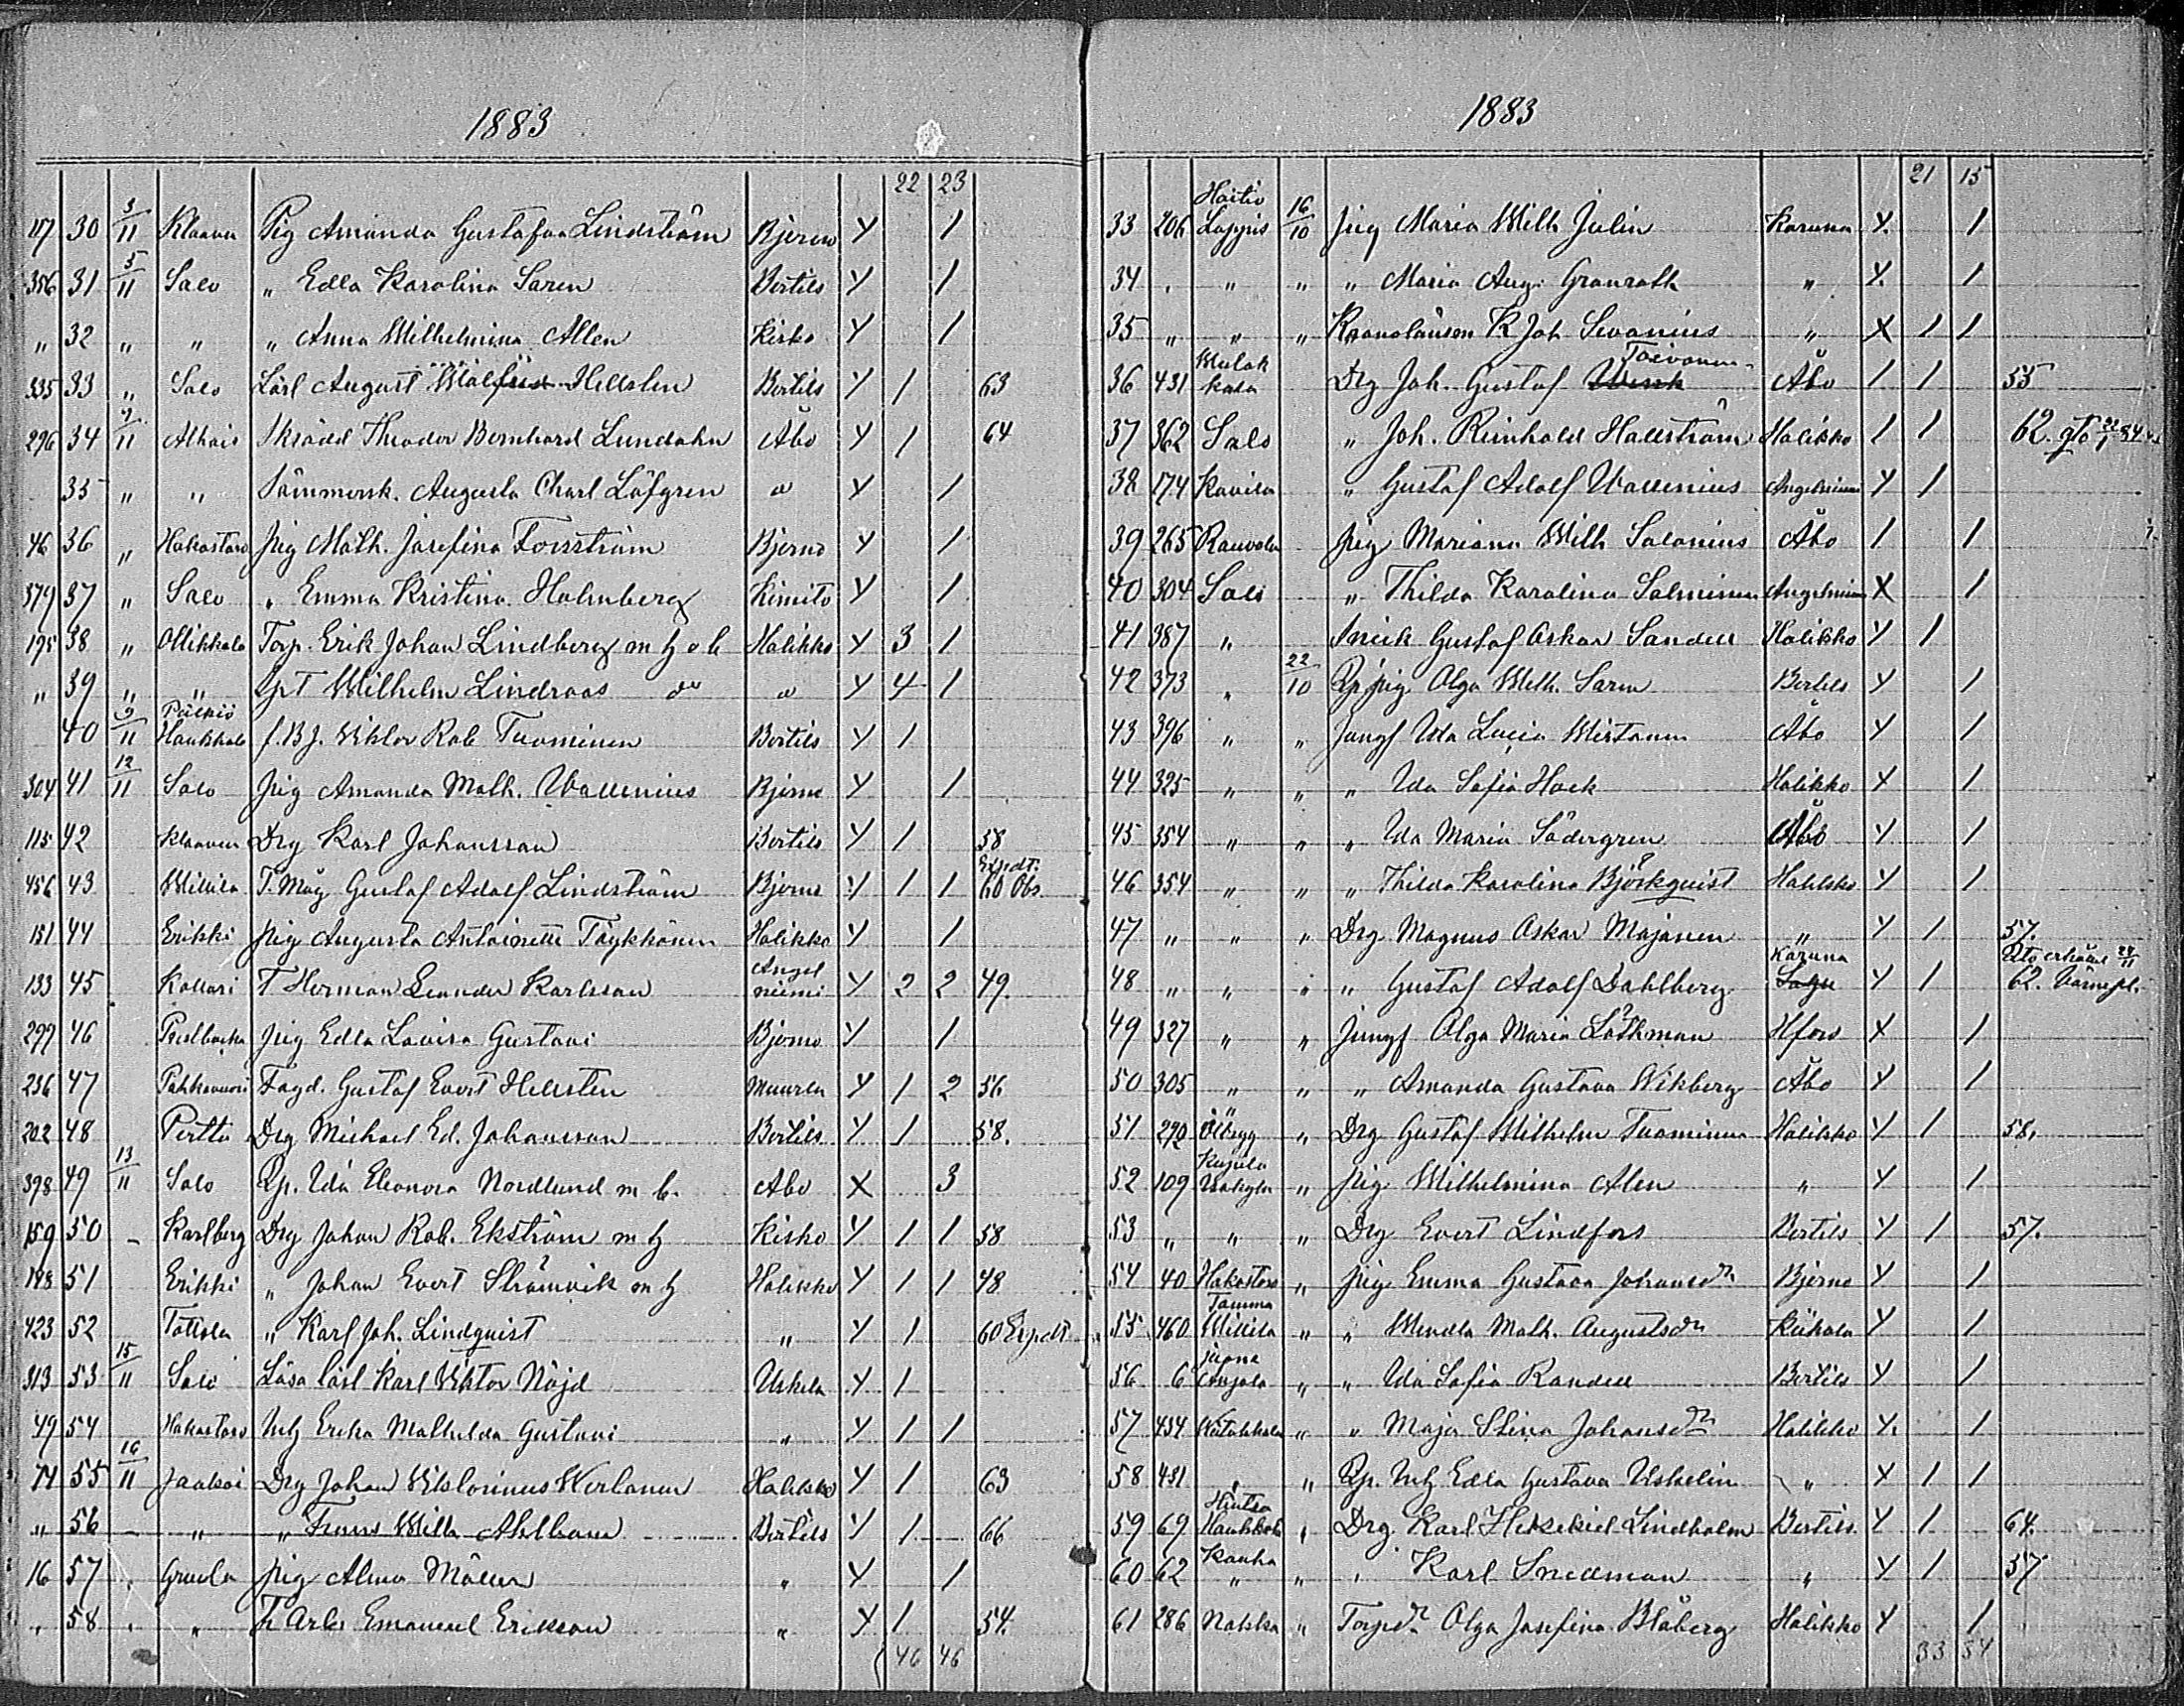 1883
22 23
117 30 3/11 Klaavu Pig Amanda Gustafva Lindström Bjerno Y 1
356 31 5/11 Salo " Edla Karolina Saren Bertils Y 1
" 32 " " " Anna Wilhelmina Allen Kisko Y 1
335 33 " Salo Lärl August Hellslen Bertils Y 1 63
296 34 7/11 Alhais Skrädd Theodor Bernhard Lundahn Åbo Y 1 64
35 " " Sömmersk. Augusta Charl Löfgren d:o Y 1
46 36 " Hakastaro Pig Math. Josefina Forsström Bjerno Y 1
379 37 " Salo " Emma Kristina Holmberg Kimito Y 1
195 38 " Ollikkala Torp. Erik Johan Lindberg m h o b Halikko Y 3 1
" 39 " " Wilhelm Lindroos d:o d:o Y 4 1
40 9/11 Haukkala f.B.J. Viktor Rob Tuominen Bertils Y 1
304 41 12/11 Salo Pig Amanda Math. Wallenius Bjerno Y 1
115 42 Klaavu Drg Karl Johansson Bertils Y 1 58
456 43 Willila T. Måg Gustaf Adolf Lindström Bjerno Y 1 1 Expdt. 60 Obs.
151 44 Erikki Pig Augusta Antoinette Töykkönen Halikko Y 1
133 45 Kollari T Herman Leander Karlsson Angelniemi Y 2 2 49.
299 46 Pig Edla Lovisa Gustavi Bjerno Y 1
236 47 Pahkavuori Fogd. Gustaf Evert Hellsten Muurla Y 1 2 56
202 48 Perttu Drg Michael Ed. Johansson Bertils Y 1 58.
398 49 13/11 Salo Rp. Ida Eleonora Nordlund m b. Åbo X 3
159 50 - Karlberg Drg Johan Rob. Ekström m h Kisko Y 1 1 58
188 51 Erikki " Johan Evert Strömvik m h Halikko Y 1 1 48
423 52 Tottola " Karl Joh. Lindquist " Y 1 60 Expdt
313 53 15/11 Salo Karl Viktor Nöjd Uskela Y 1
49 54 Hakastaro Inh Erika Mathilda Gustavi " Y 1 1
71 55 16/11 Jaakoi Drg Johan Viktorinus Werlanen Halikko Y 1 63
" 56 - " " Frans Wilh Ahlbom Bertils Y 1 66
16 57 " Gruula Pig Alma Möller " Y 1
" 58 " " Emanuel Eriksson " Y 1 54.
46 46
1883
21 15
33 206 Haitio Lappis 16/10 Pig Maria Wilh Julin Karuna Y. 1
34 . " " " Maria Aug. Granroth " Y. 1
35 " " " K Joh Sevonius " X 1 1
36 431 Mulakkala Drg Joh. Gustaf Toivonen Åbo 1 1 55
37 362 Salo " Joh. Reinhold Hallström Halikko 1 1 62.
38 174 Kavila " Gustaf Adolf Wallenius Angelniemi Y 1
39 265 Rauvola Pig Mariana Wilh Salonius Åbo 1 1
40 304 Salo " Thilda Karolina Salminen Angelniemi X 1
41 387 " Snick Gustaf Oskar Sandell Halikko Y 1
42 373 " 22/10 Rp. pig. Olga Wilh. Saren Bertils Y 1
43 396 " " Jungf Ida Lucia Wirtanen Åbo Y 1
44 325 " " " Ida Sofia Hock Halikko X 1
45 354 " " " Ida Maria Södergren Åbo Y 1
46 354 " " " Thilda Karolina Björkquist Halikko Y 1
47 " " " Drg Magnus Oskar Majanen " Y 1 57.
48 " " " " Gustaf Adolf Dahlberg Karuna Sagu Y 1 62.
49 327 " " Jungf Olga Maria Låthman Hfors X 1
50 305 " " " Amanda Gustava Wikberg Åbo Y 1
51 290 Ölbryg " Drg Gustaf Wilhelm Tuominen Halikko Y 1 58.
52 109 " Pig Wilhelmina Alen " Y 1
53 " " " Drg Evert Lindfors Bertils Y 1 57.
54 40 Hakastaro " Pig Emma Gustava Johansdr Bjerno Y 1
55 460 Tamma Willila " " Wendla Math. Augustsdr Kiikala Y 1
56 6 " " Ida Sofia Randell Bertils Y 1
57 434 " " Maja Stina Johansdr Halikko Y. 1
58 431 " " Rp. Inh Edla Gustava Uskelin " X 1 1
59 69 Hintsa Haukkala " Drg. Karl Hesekiel Lindholm Bertils Y 1 64.
60 62 Kauha " " " Karl Snedman " Y 1 57
61 286 Nokka " Torpdr Olga Josefina Blåberg Halikko Y 1
33 34